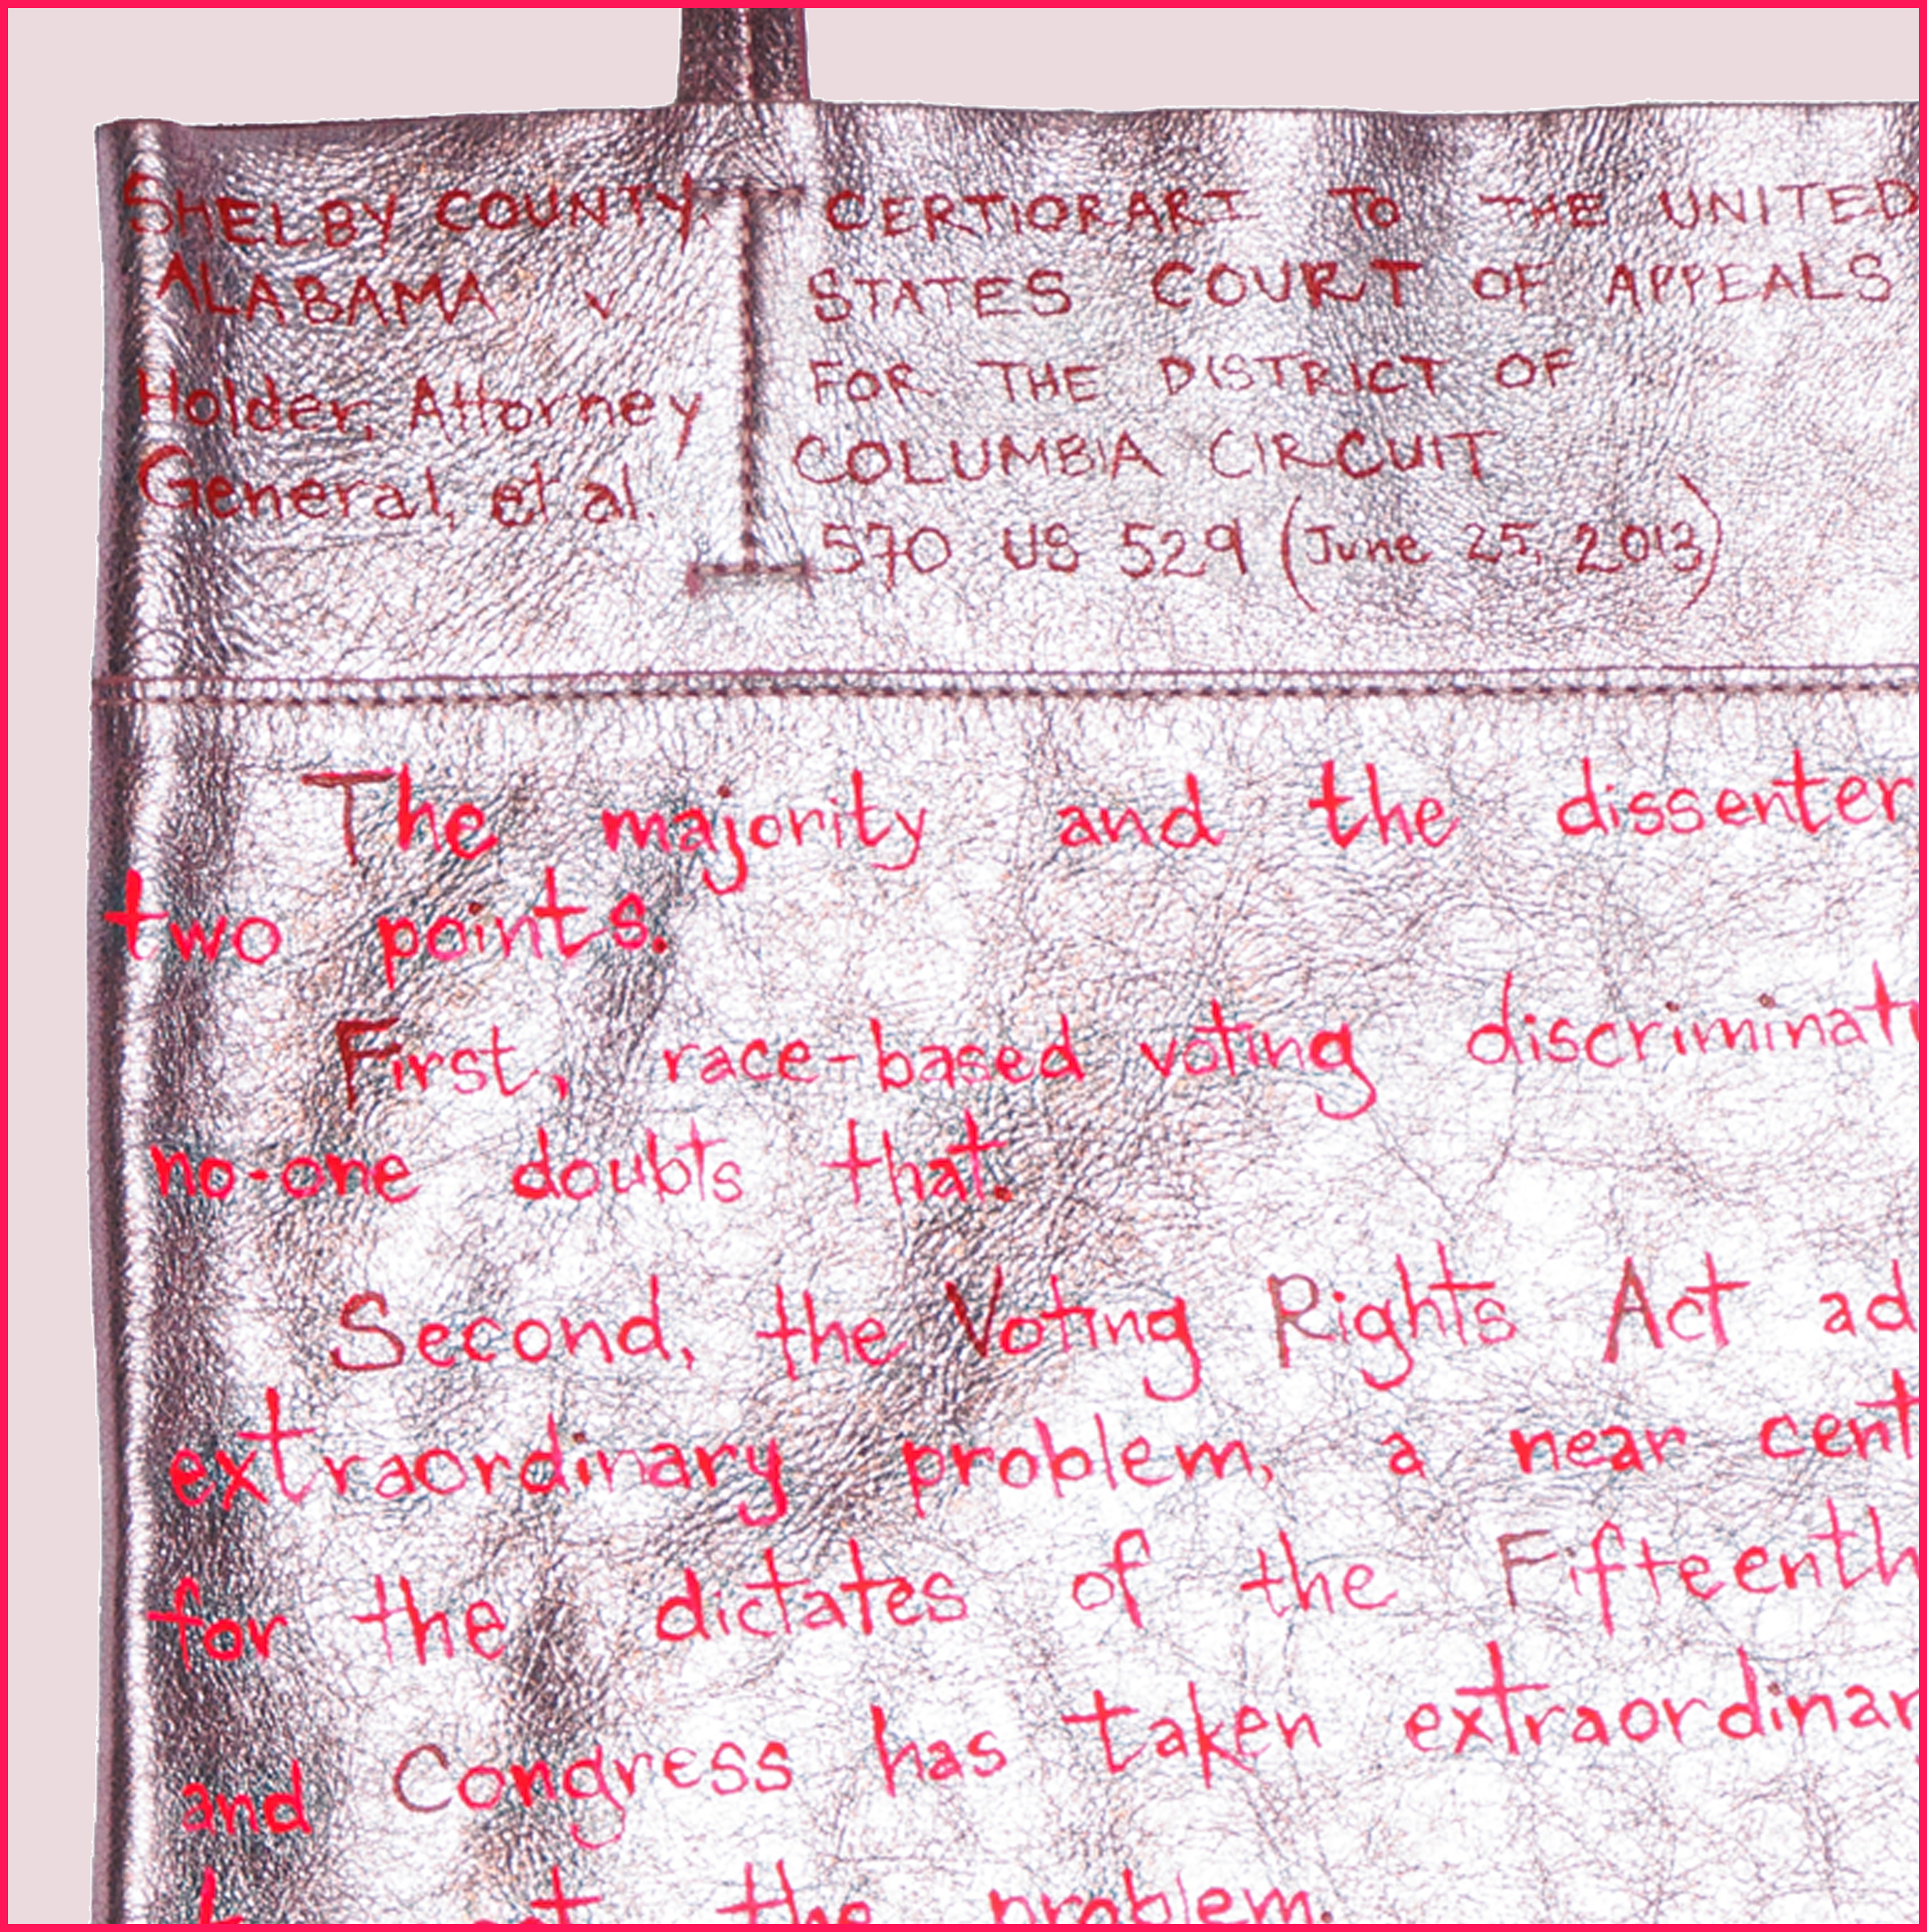 SHELBY COUNTY
ALABAMA v
Holder, Attorney
General, et al.
CERTIORARI TO THE UNITED
STATES COURT OF APPEALS
FOR THE DISTRICT OF
COLUMBIA CIRCUIT
570 US 529 (June 25, 2013)
The majority and the dissenter
two points.
First, race-based voting discriminat
no-one doubts that.
Second, the Voting Rights Act ad
extraordinary problem, a near cent
for the dictates of the Fifteenth
and Congress has taken extraordinar
the problem.